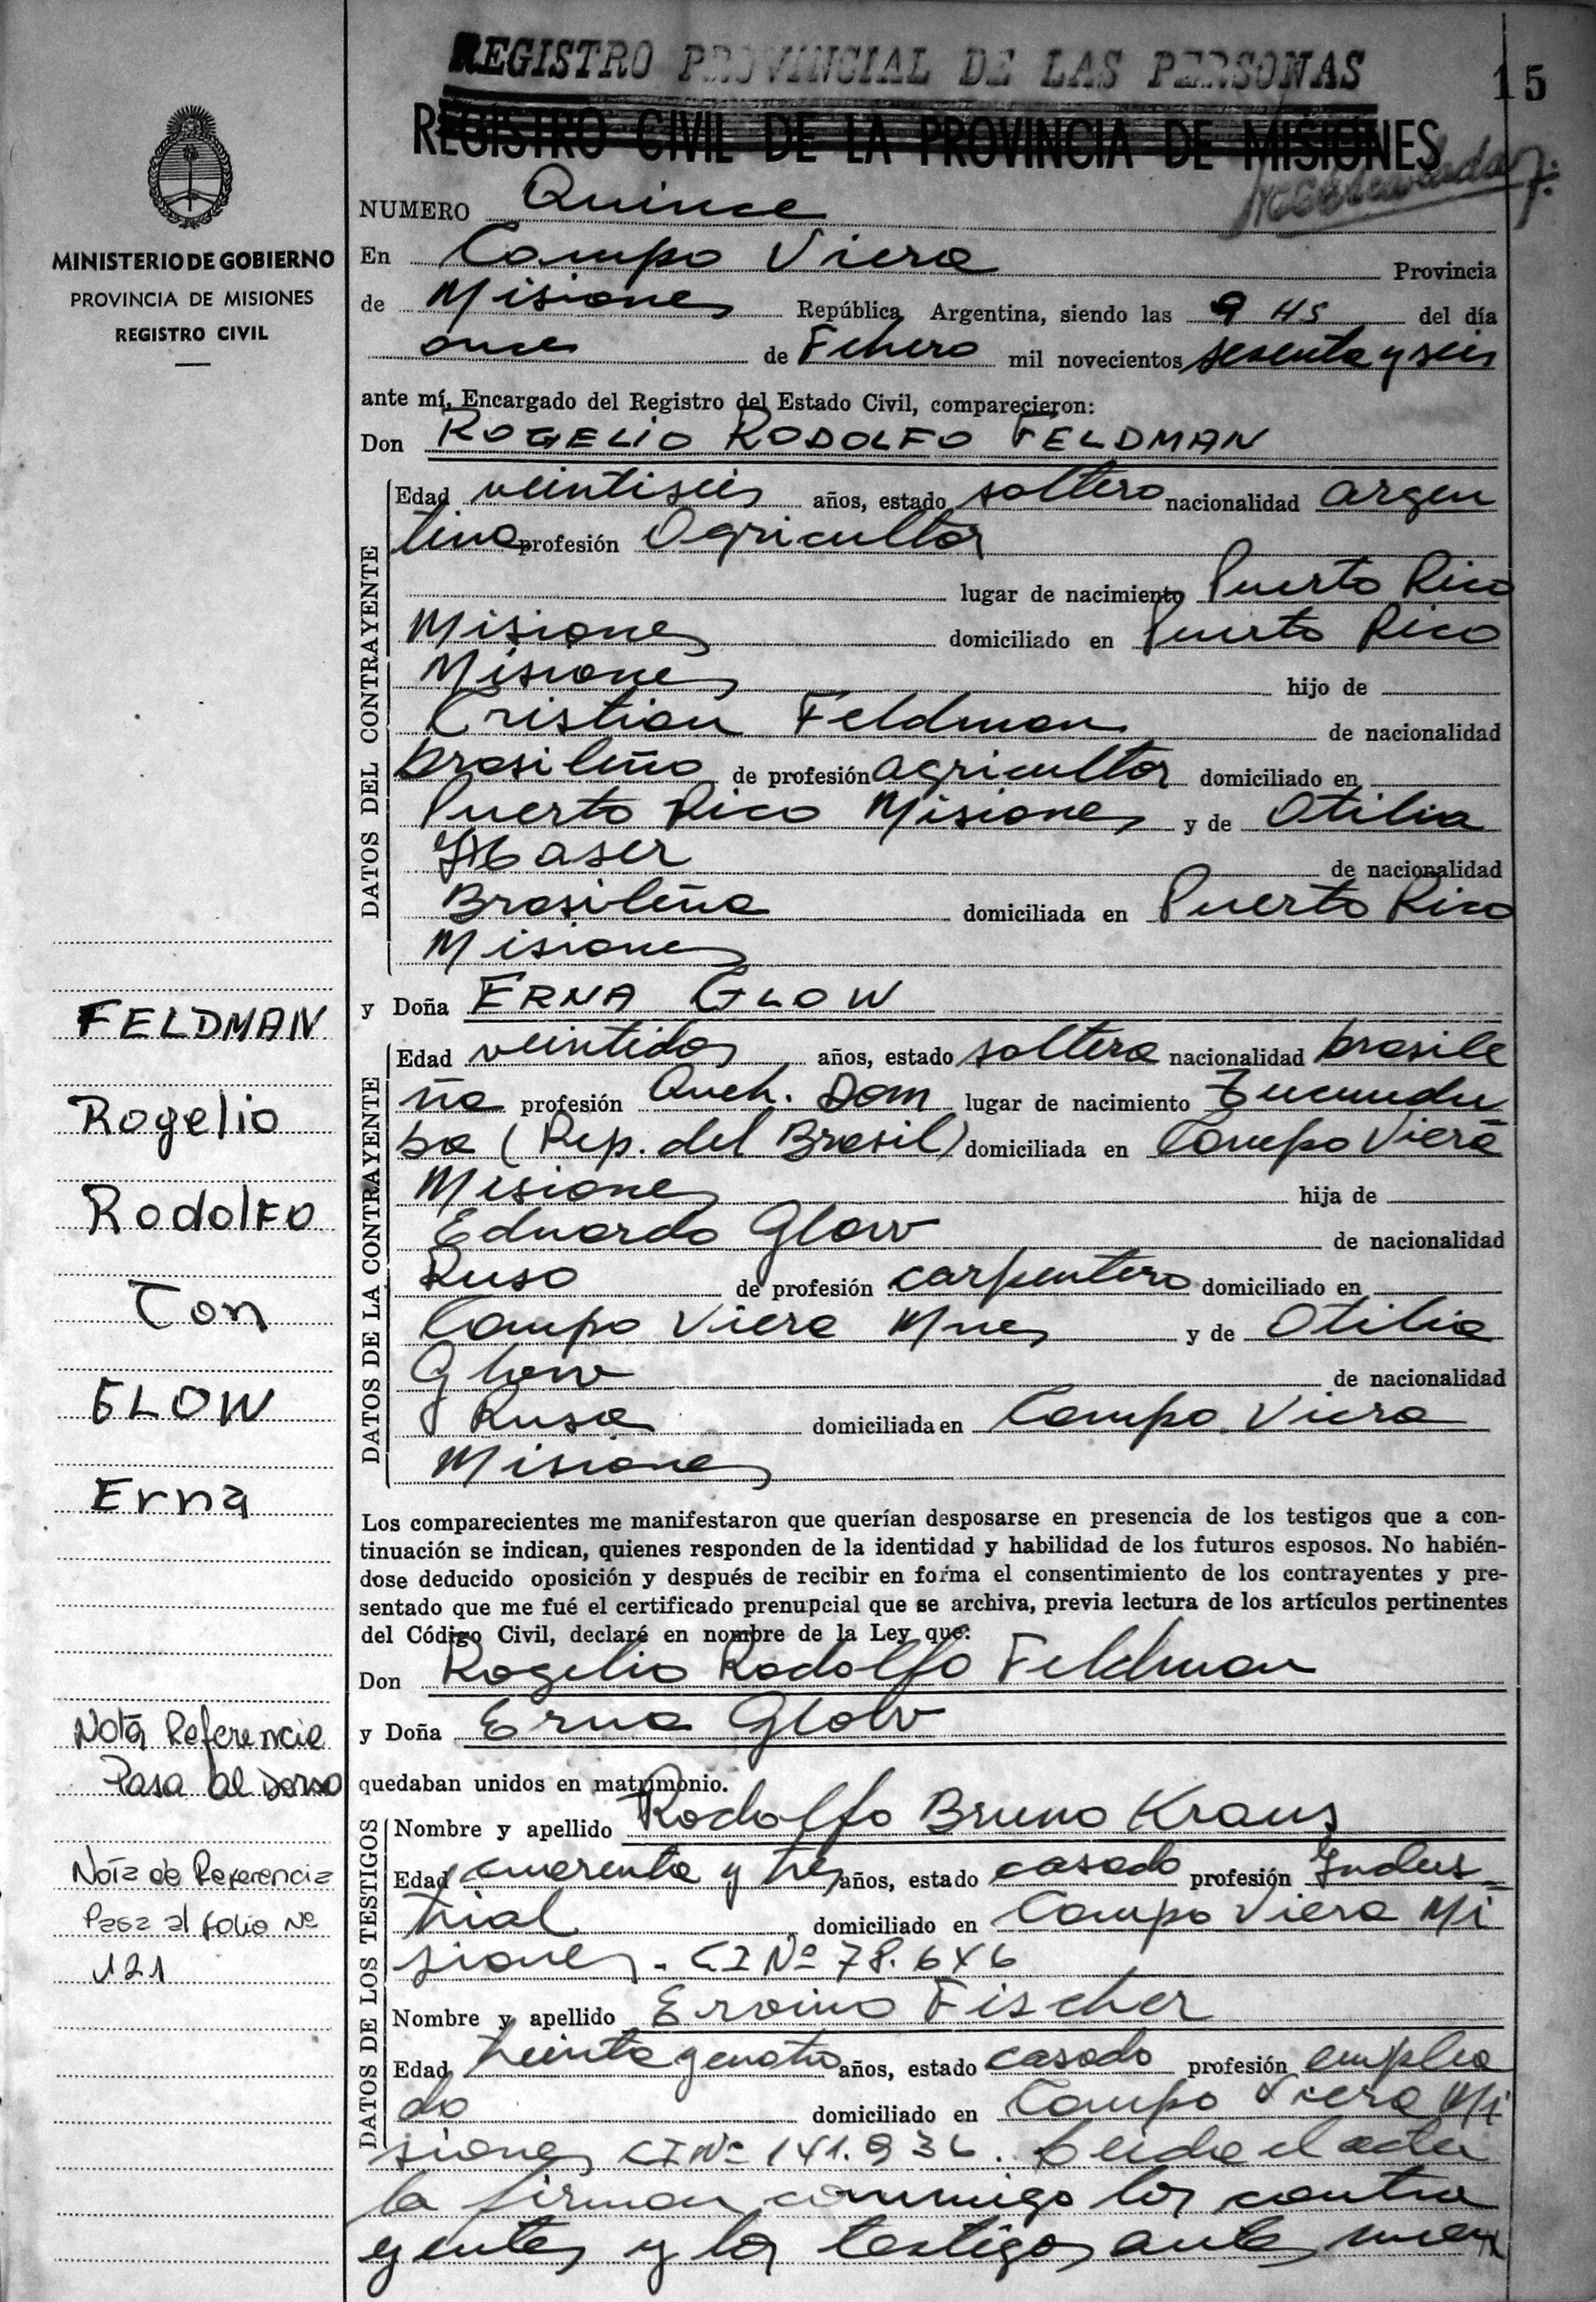 REGISTRO PROVINCIAL DE LAS PERSONAS
15
REGISTRO CIVIL DE LA PROVINCIA DE MISIONES
MINISTERIO DE GOBIERNO
PROVINCIA DE MISIONES
REGISTRO CIVIL
NUMERO Quince
En Campo Viera Provincia
de Misiones República Argentina, siendo las 9 HS del día
once de Febrero mil novecientos sesenta y seis
ante mí, Encargado del Registro del Estado Civil, comparecieron:
Don ROGELIO RODOLFO FELDMAN
DATOS DEL CONTRAYENTE
Edad veintiseis años, estado soltero nacionalidad argen
tina profesión Agricultor
lugar de nacimiento Puerto Rico
Misiones domiciliado en Puerto Rico
Misiones hijo de
Cristian Feldman de nacionalidad
brasileño de profesión agricultor domiciliado en
Puerto Rico Misiones y de Otilia
de nacionalidad
Brasileña domiciliada en Puerto Rico
Misiones
y Doña ERNA GLOW
DATOS DE LA CONTRAYENTE
Edad veintidos años, estado soltera nacionalidad brasile
ña profesión Queh. Dom lugar de nacimiento
(Rep. del Brasil) domiciliada en Campo Viera
Misiones hija de
Eduardo Glow de nacionalidad
Ruso de profesión carpintero domiciliado en
Campo Viera Mnes y de Otilia
Glow de nacionalidad
Rusa domiciliada en Campo Viera
Misiones
Los comparecientes me manifestaron que querían desposarse en presencia de los testigos que a con-
tinuación se indican, quienes responden de la identidad y habilidad de los futuros esposos. No habién-
dose deducido oposición y después de recibir en forma el consentimiento de los contrayentes y pre-
sentado que me fué el certificado prenupcial que se archiva, previa lectura de los artículos pertinentes
del Código Civil, declaré en nombre de la Ley que:
Don Rogelio Rodolfo Feldman
y Doña Erna Glow
quedaban unidos en matrimonio.
DATOS DE LOS TESTIGOS
Nombre y apellido Rodolfo Bruno Kraus
Edad cuarenta y tres años, estado casado profesión Indus
trial domiciliado en Campo Viera Mi
siones. CI Nº 78.646
Nombre y apellido Ervino Fischer
Edad treinta y cuatro años, estado casado profesión emplea
do domiciliado en Campo Viera Mi
siones CI Nº 141.936. Leida el acta
la firman conmigo los contra
yentes y los testigos antes
FELDMAN
Rogelio
Rodolfo
Con
GLOW
Erna
Nota Referencia
Pasa al Dorso
Nota de Referencia
Pasa al folio Nº
121